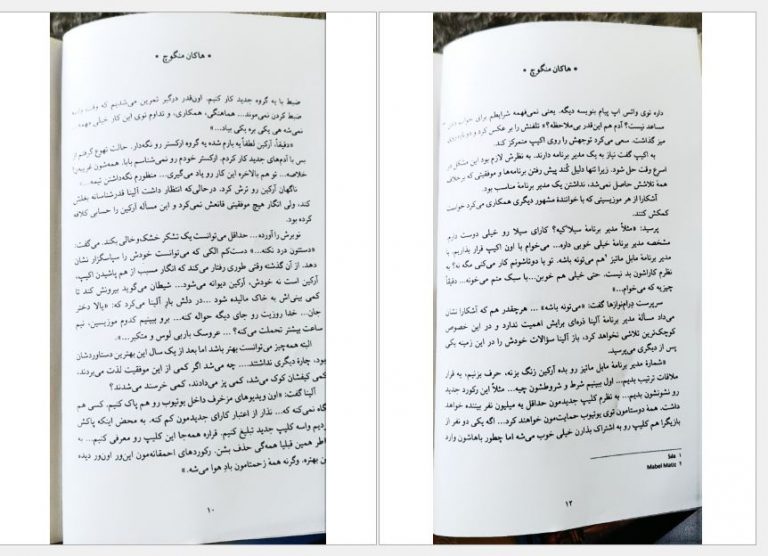 • هاکان منگوچ •
داره توی واتس اپ پیام بنویسه دیگه. یعنی نمی‌فهمه شرایطم برای جواب دادن
مساعد نیست؟ آدم هم این‌قدر بی‌ملاحظه؟» تلفنش را بر عکس کرد و دوباره روی
میز گذاشت. سعی می‌کرد توجهش را روی اکیپ متمرکز کند.
به اکیپ گفت نیاز به یک مدیر برنامه دارند. به نظرش لازم بود این مشکل در
اسرع وقت حل شود. زیرا تنها دلیل کُند پیش رفتن برنامه‌ها و موفقیتی که برخلاف
همهٔ تلاشش حاصل نمی‌شد، نداشتن یک مدیر برنامهٔ مناسب بود.
آشکارا از هر موزیسینی که با خوانندهٔ مشهور دیگری همکاری می‌کرد خواست
کمکش کنند.
پرسید: «مثلاً مدیر برنامهٔ سیلا کیه؟ کارای سیلا رو خیلی دوست دارم.
مشخصه مدیر برنامهٔ خیلی خوبی داره... می‌خوام با اون اکیپ قرار بذاریم. یا
مدیر برنامهٔ مابل ماتیز هم می‌تونه باشه. تو با دوتاشونم کار می‌کنی مگه نه؟ به
نظرم کاراشون بد نیست. حتی خیلی هم خوبن... با سبک منم می‌خونه. دقیقاً
چیزیه که می‌خوام...»
سرپرست دِرام‌نوازها گفت: «می‌تونه باشه» ... هرچقدر هم که آشکارا نشان
می‌داد مسألهٔ مدیر برنامهٔ آلینا ذره‌ای برایش اهمیت ندارد و در این خصوص
کوچک‌ترین تلاشی نخواهد کرد، باز آلینا سؤالات خودش را در این زمینه یکی
پس از دیگری می‌پرسید.
«شمارهٔ مدیر برنامهٔ مابل ماتیز رو بده آرکین زنگ بزنه، حرف بزنیم، یه قرار
ملاقات ترتیب بدیم... اول ببینیم شرط و شروطشون چیه... مثلاً این رکورد جدید
رو نشونشون بدیم... به نظرم کلیپ جدیدمون حداقل یه میلیون نفر بیننده خواهد
داشت. همهٔ دوستامون توی یوتیوب حمایت‌مون خواهند کرد... اگه یکی دو نفر از
بازیگرا هم کلیپ رو به اشتراک بذارن خیلی خوب می‌شه اما چطور باهاشون وارد
۱ Sıla
۲ Mabel Matiz
۱۲
• هاکان منگوچ •
ضبط با یه گروه جدید کار کنیم. اون‌قدر درگیر تمرین می‌شدیم که وقت واسه
ضبط کردن نمی‌موند... هماهنگی، همکاری، و تداوم توی این کار خیلی مهمه.
نمی‌شه هی یکی بره یکی بیاد...»
«دقیقاً. آرکین لطفاً یه بارم شده یه گروه ارکستر رو نگه‌دار. حالت تهوع گرفتم از
بس با آدم‌های جدید کار کردم. ارکستر خودم رو نمی‌شناسم بابا. همه‌شون غریبه‌ن!
خلاصه... تو هم بالاخره این کار رو یاد می‌گیری... منظورم نگه‌داشتن تیمه...»
ناگهان آرکین رو ترش کرد. در‌حالی‌که انتظار داشت آلینا قدرشناسانه بغلش
کند، ولی انگار هیچ موفقیتی قانعش نمی‌کرد و این مسأله آرکین را حسابی کلافه
کرده بود.
نوبرش را آورده... حداقل می‌توانست یک تشکر خشک‌وخالی بکند. می‌گفت:
«دستتون درد نکنه...» دست‌کم الکی که می‌توانست خودش را سپاسگزار نشان
دهد. از آن گذشته وقتی طوری رفتار می‌کند که انگار مسبب از هم پاشیدن اکیپ،
آرکین است نه خودش، آرکین دیوانه می‌شود... شیطان می‌گوید بیرونش کند تا
کمی بینی‌اش به خاک مالیده شود ...در دلش بارِ آلینا می‌کرد که: «یالا دختر
جان... خدا روزیت رو جای دیگه حواله کنه... برو ببینیم کدوم موزیسین، نیم
ساعت بیشتر تحملت می‌کنه؟ ... عروسک باربی لوس و متکبر...»
البته همه‌چیز می‌توانست بهتر باشد اما بعد از یک سال این بهترین دستاوردشان
بود. چارهٔ دیگری نداشتند... چه می‌شد اگر کمی از این موفقیت لذت می‌بردند،
کمی کیفشان کوک می‌شد، کمی پز می‌دادند، کمی خرسند می‌شدند؟
آلینا گفت: «اون ویدیوهای مزخرف داخل یوتیوب رو هم پاک کنیم. کسی هم
نگاه نمی‌کنه که... نذار از اعتبار کارای جدیدمون کم کنه. به محض اینکه پاکش
کردیم واسه کلیپ جدید تبلیغ کنیم. قراره همه‌جا این کلیپ رو معرفی کنیم... به
خاطر همین قبلیا همه‌گی حذف بشن. رکوردهای احمقانه‌مون این‌ور اون‌ور دیده
بهتره. وگرنه همهٔ زحمتامون بادِ هوا می‌شه.»
۱۰